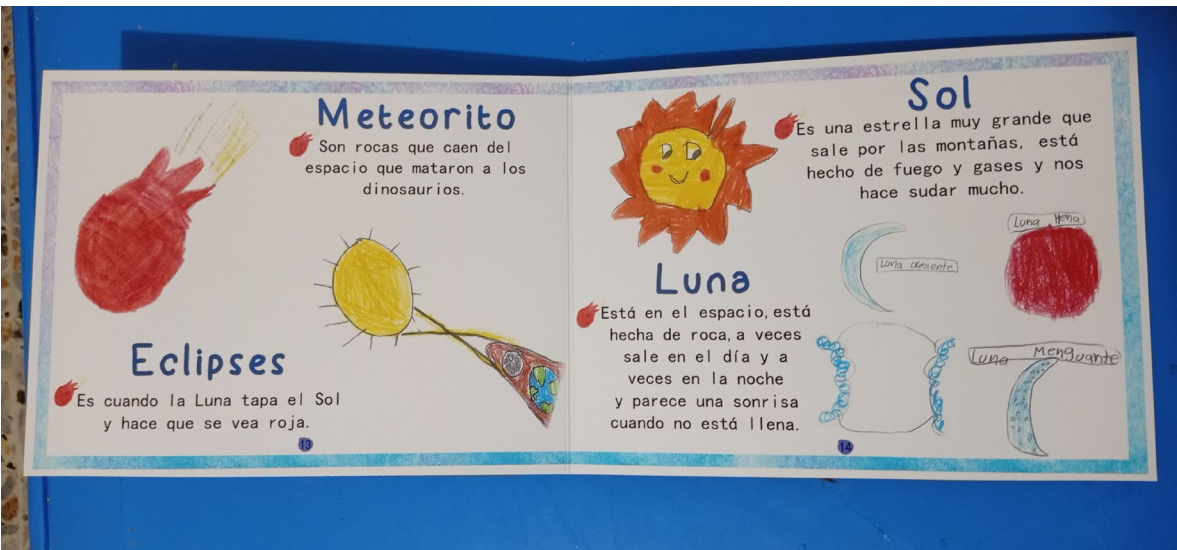 Meteorito
Son rocas que caen del
espacio que mataron a los
dinosaurios.
Eclipses
Es cuando la Luna tapa el Sol
y hace que se vea roja.
13
Sol
Es una estrella muy grande que
sale por las montañas, está
hecho de fuego y gases y nos
hace sudar mucho.
Luna
Está en el espacio, está
hecha de roca, a veces
sale en el día y a
veces en la noche
y parece una sonrisa
cuando no está llena.
Luna llena
Luna cresiente
Luna Menguante
14